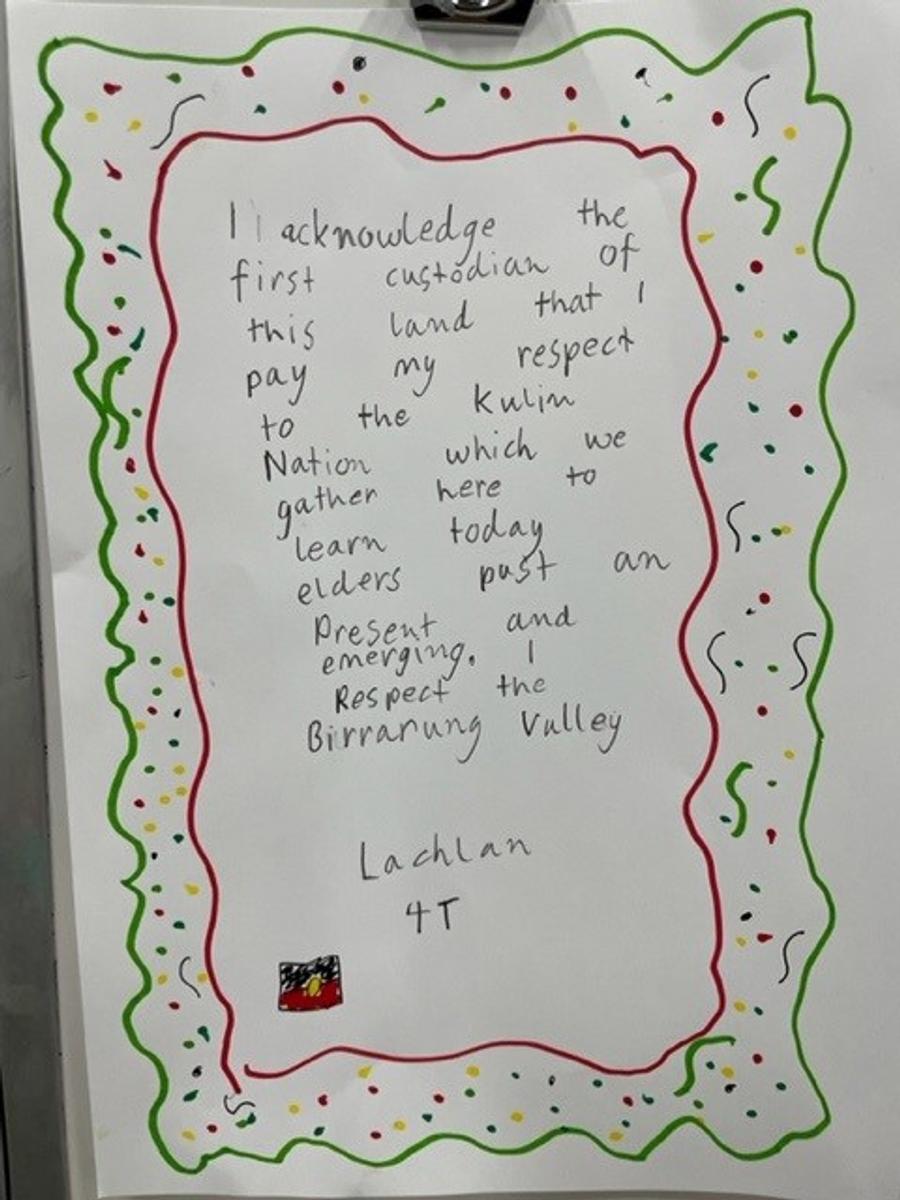 I acknowledge the
first custodian of
this land that I
pay my respect
to the Kulin
Nation which we
gather here to
learn today
elders past an
Present and
emerging. I
Respect the
Birrarung Valley
Lachlan
4T